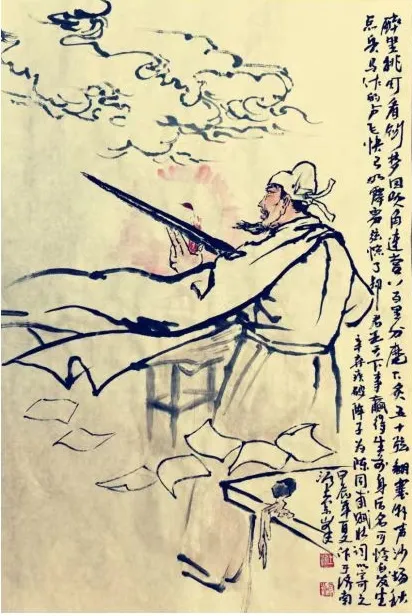 醉里挑灯看剑梦回吹角連营八百里分麾下炙五十弦翻塞外声沙场秋
点兵马作的卢飞快弓如霹雳弦惊了却君王天下事赢得生前身后名可怜白发生
辛弃疾破阵子为陈同甫赋壮词以寄之
甲辰年夏于济南